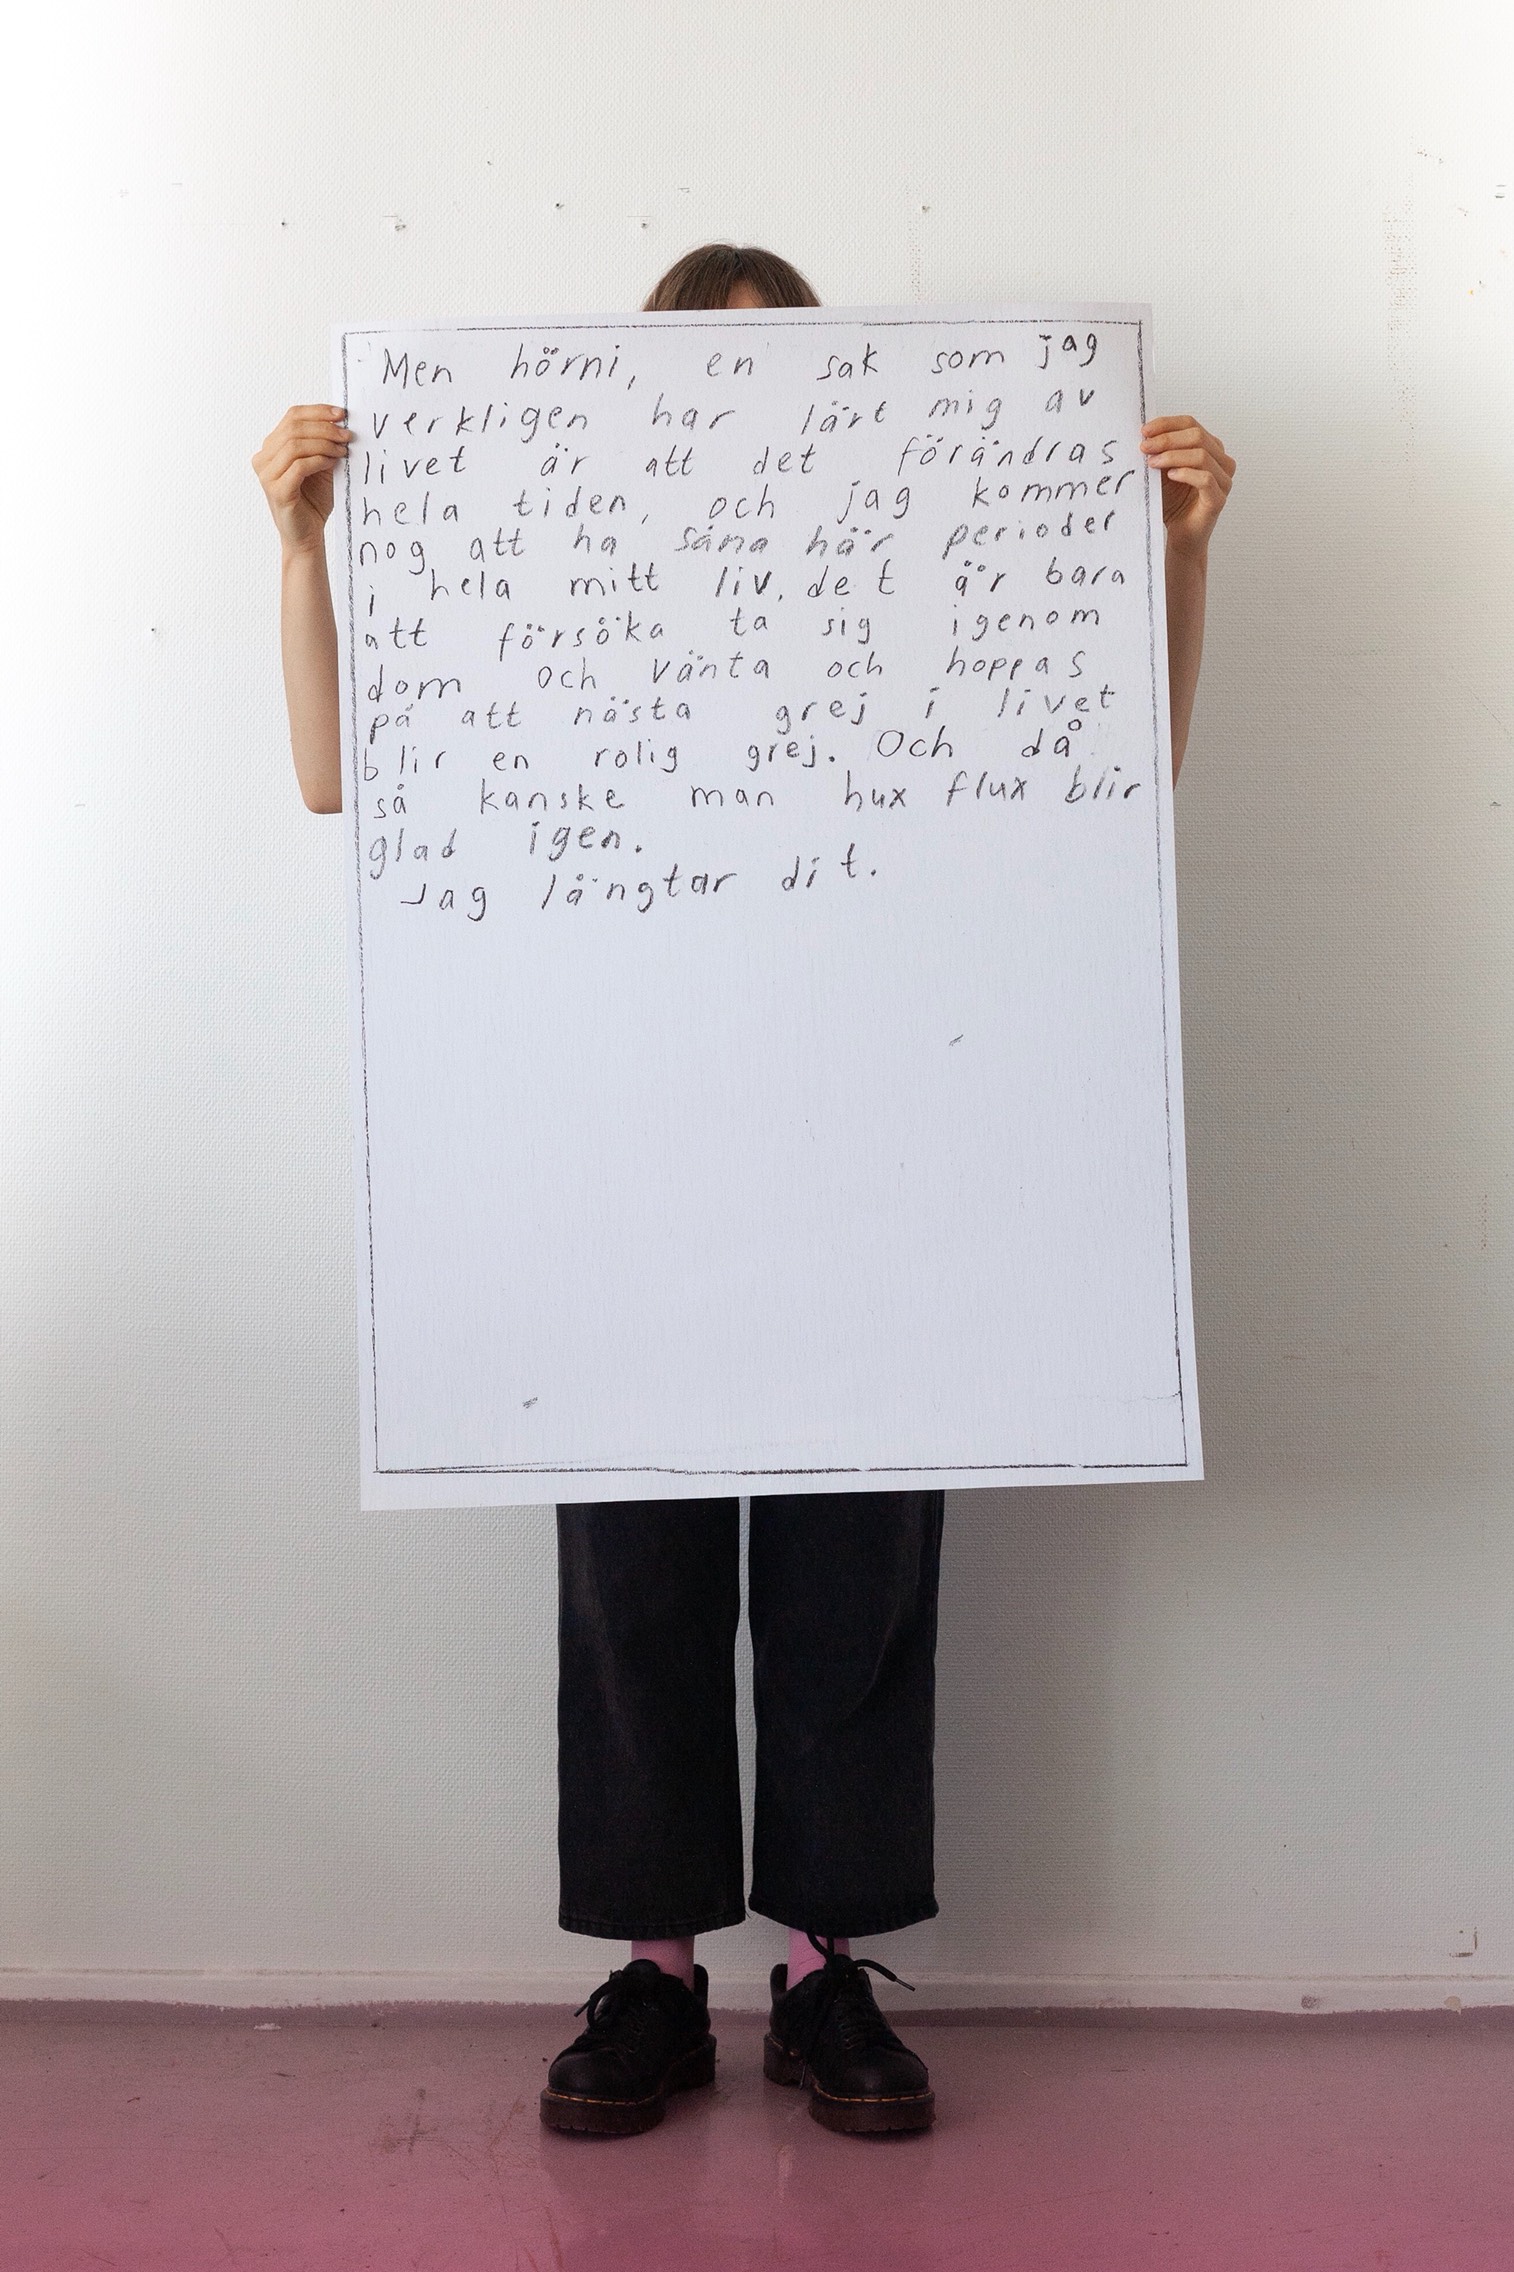 Men hörni, en sak som jag
verkligen har lärt mig av
livet är att det förändras
hela tiden, och jag kommer
nog att ha såna här perioder
i hela mitt liv, det är bara
att försöka ta sig igenom
dom och vänta och hoppas
på att nästa grej i livet
blir en rolig grej. Och då
så kanske man hux flux blir
glad igen.
Jag längtar dit.